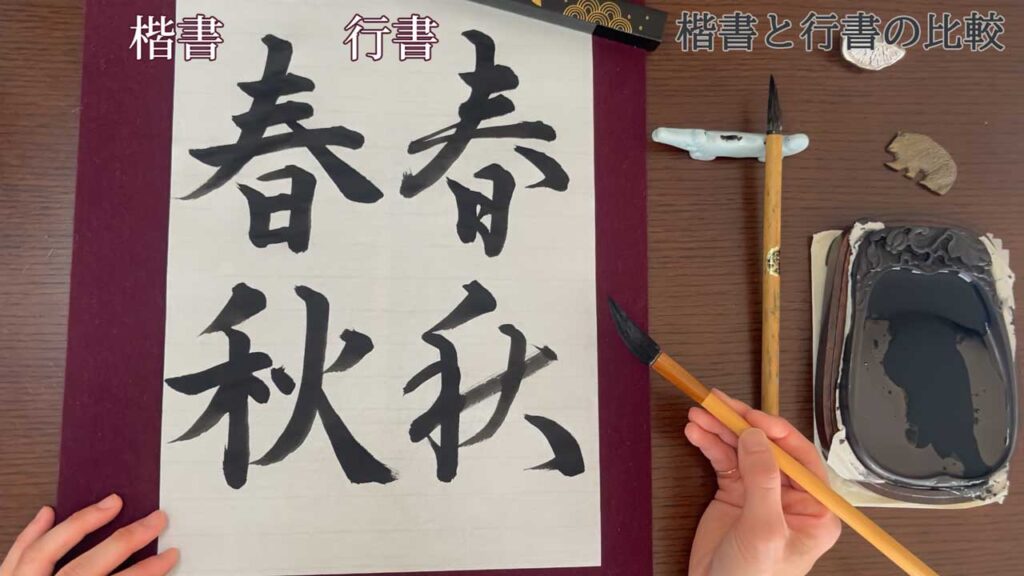 楷書 行書
楷書と行書の比較
春 春
秋 秋